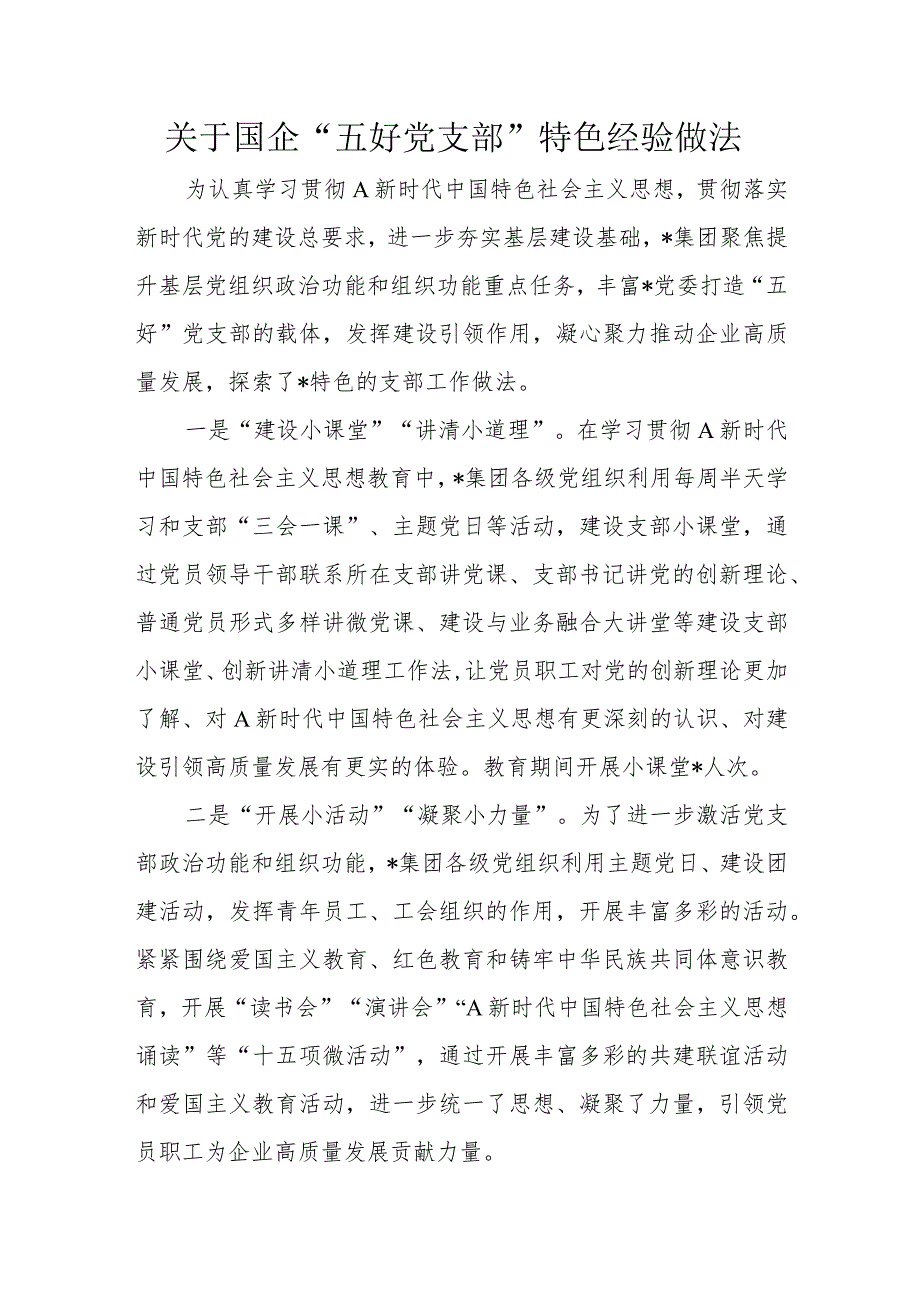 关于国企“五好党支部”特色经验做法
为认真学习贯彻A新时代中国特色社会主义思想，贯彻落实
新时代党的建设总要求，进一步夯实基层建设基础，*集团聚焦提
升基层党组织政治功能和组织功能重点任务，丰富*党委打造“五
好”党支部的载体，发挥建设引领作用，凝心聚力推动企业高质
量发展，探索了*特色的支部工作做法。
一是“建设小课堂”“讲清小道理”。在学习贯彻A新时代
中国特色社会主义思想教育中，*集团各级党组织利用每周半天学
习和支部“三会一课”、主题党日等活动，建设支部小课堂，通
过党员领导干部联系所在支部讲党课、支部书记讲党的创新理论、
普通党员形式多样讲微党课、建设与业务融合大讲堂等建设支部
小课堂、创新讲清小道理工作法,让党员职工对党的创新理论更加
了解、对A新时代中国特色社会主义思想有更深刻的认识、对建
设引领高质量发展有更实的体验。教育期间开展小课堂*人次。
二是“开展小活动”“凝聚小力量”。为了进一步激活党支
部政治功能和组织功能，*集团各级党组织利用主题党日、建设团
建活动，发挥青年员工、工会组织的作用，开展丰富多彩的活动。
紧紧围绕爱国主义教育、红色教育和铸牢中华民族共同体意识教
育，开展“读书会”“演讲会”“A新时代中国特色社会主义思想
诵读”等“十五项微活动”，通过开展丰富多彩的共建联谊活动
和爱国主义教育活动，进一步统一了思想、凝聚了力量，引领党
员职工为企业高质量发展贡献力量。